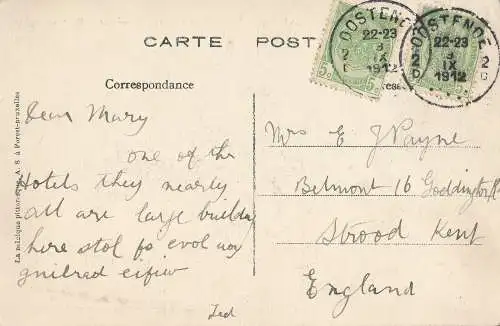 CARTE POST
Correspondance
OOSTENDE
22-23
8
IX
1912
2 D
OOSTENDE
22-23
8
IX
1912
2 D
5c
5c
Dear Mary
one of the
Hotels they nearly
all are large buildin
here stol fo evol
gnilrad
Ted
Mrs E J Payne
Belmont 16 Goddington R
Strood Kent
England
La belgique A. S. à Forest-Bruxelles